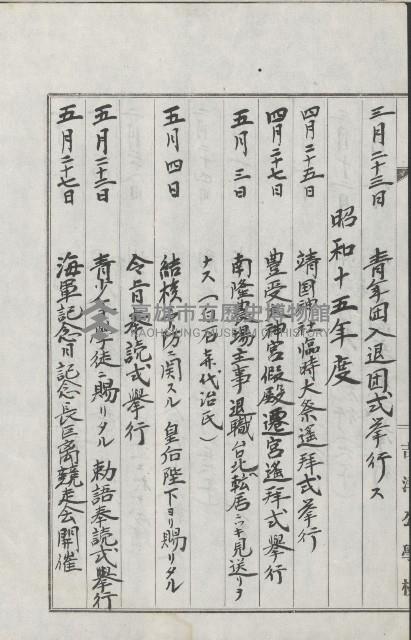 三月二十三日　青年団入退団式挙行ス
昭和十五年度
四月二十五日　靖国神社臨時大祭遙拝式挙行
四月二十七日　豊受大神宮假殿遷宮遙拝式挙行
五月三日　南隆農場主事退職台北ヘ転居ニツキ見送リヲ
ナス（年代治氏）
五月四日　結核予防ニ関スル　皇后陛下ヨリ賜リタル
令旨奉読式挙行
五月二十二日　青少年学徒ニ賜リタル　勅語奉読式挙行
五月二十七日　海軍記念日記念長距離競走会開催
公學校
高雄市立歷史博物館
KAOHSIUNG MUSEUM OF HISTORY